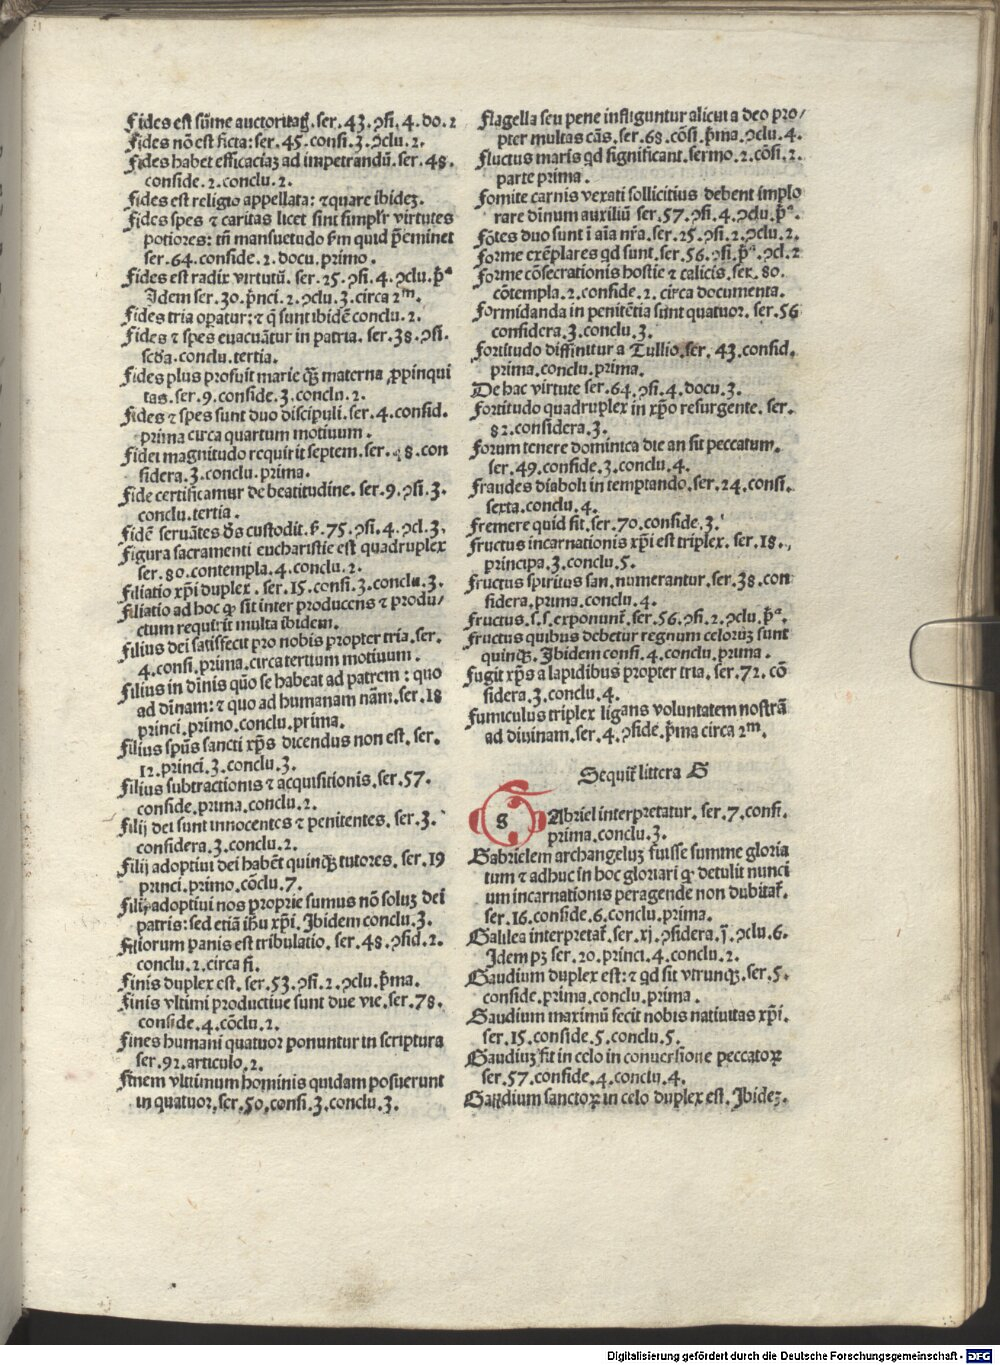 Fides est sūme auctoritatꝭ. ser. 43. ꝯsi. 4. do. 2
Fides nō est ficta: ser. 45. consi. 3. ꝯclu. 2.
Fides habet efficaciaꝫ ad impetrandū. ser. 48.
conside. 2. conclu. 2.
Fides est religio appellata: ⁊ quare ibideꝫ.
Fides spes ⁊ caritas licet sint simplr̄ virtutes
potiores: tn̄ mansuetudo ẜm quid p̄eminet
ser. 64. conside. 2. docu. primo.
Fides est radix virtutū. ser. 25. ꝯsi. 4. ꝯclu. p̄ᵃ
Idem ser. 30. p̄nci. 2. ꝯclu. 3. circa 2ᵐ.
Fides tria oꝑatur: ⁊ q̄ sunt ibidē conclu. 2.
Fides ⁊ spes euacuātur in patria. ser. 38. ꝯsi.
scd̄a. conclu. tertia.
Fides plus profuit marie qꝫ̄ materna ꝓpinqui
tas. ser. 9. conside. 3. conclu. 2.
Fides ⁊ spes sunt duo discipuli. ser. 4. consid.
prima circa quartum motiuum.
Fidei magnitudo requirit septem. ser. 48. con
sidera. 3. conclu. prima.
Fide certificamur de beatitudine. ser. 9. ꝯsi. 3.
conclu. tertia.
Fidē seruātes de͛s custodit. ẜ. 75. ꝯsi. 4. ꝯcl. 3.
Figura sacramenti eucharistie est quadruplex
ser. 80. contempla. 4. conclu. 2.
Filiatio xp̄i duplex. ser. 15. consi. 3. conclu. 3.
Filiatio ad hoc ꝙ sit inter producens ⁊ produ/
ctum requirit multa ibidem.
Filius dei satisfecit pro nobis propter tria. ser.
4. consi. prima. circa tertium motiuum.
Filius in diuinis quō se habeat ad patrem: quo
ad diuinam: ⁊ quo ad humanam nām. ser. 18
princi. primo. conclu. prima.
Filius spūs sancti xp̄s dicendus non est. ser.
12. princi. 3. conclu. 3.
Filius subtractionis ⁊ acquisitionis. ser. 57.
conside. prima. conclu. 2.
Filij dei sunt innocentes ⁊ penitentes. ser. 3.
considera. 3. conclu. 2.
Filij adoptiui dei habēt quinqꝫ tutores. ser. 19
princi. primo. cōclu. 7.
Filij adoptiui nos proprie sumus nō soluꝫ dei
patris: sed etiā ihū xp̄i. Ibidem conclu. 3.
Filiorum panis est tribulatio. ser. 48. ꝯsid. 2.
conclu. 2. circa fi.
Finis duplex est. ser. 53. ꝯsi. 2. ꝯclu. p̄ma.
Finis vltimi productiue sunt due vie. ser. 78.
conside. 4. cōclu. 2.
Fines humani quatuor ponuntur in scriptura
ser. 92. articulo. 2.
Finem vltimum hominis quidam posuerunt
in quatuor. ser. 50. consi. 3. conclu. 3.
Flagella seu pene infliguntur alicui a deo pro/
pter multas cās. ser. 68. cōsi. p̄ma. ꝯclu. 4.
Fluctus maris qd significant. sermo. 2. cōsi. 2.
parte prima.
Fomite carnis vexati sollicitius debent implo
rare diuinum auxiliū ser. 57. ꝯsi. 4. ꝯclu. p̄ᵃ.
Fōtes duo sunt ī aīa nr̄a. ser. 25. ꝯsi. 2. ꝯclu. 2.
Forme exēplares qd sunt. ser. 56. ꝯsi. p̄ᵃ. ꝯcl. 2
Forme cōsecrationis hostie ⁊ calicis. ser. 80.
cōtempla. 2. conside. 2. circa documenta.
Formidanda in penitētia sunt quatuor. ser. 56
considera. 3. conclu. 3.
Fortitudo diffinitur a Tullio. ser. 43. consid.
prima. conclu. prima.
De hac virtute ser. 64. ꝯsi. 4. docu. 3.
Fortitudo quadruplex in xp̄o resurgente. ser.
82. considera. 3.
Forum tenere dominica die an sit peccatum.
ser. 49. conside. 3. conclu. 4.
Fraudes diaboli in temptando. ser. 24. consi.
sexta. conclu. 4.
Fremere quid sit. ser. 70. conside. 3.
Fructus incarnationis xp̄i est triplex. ser. 18.
principa. 3. conclu. 5.
Fructus spiritus san. numerantur. ser. 38. con
sidera. prima. conclu. 4.
Fructus. s. s. exponunt᷑. ser. 56. ꝯsi. 2. ꝯclu. p̄ᵃ.
Fructus quibus debetur regnum celoruꝫ sunt
quinqꝫ. Ibidem consi. 4. conclu. prima.
Fugit xp̄s a lapidibus propter tria. ser. 72. cō
sidera. 3. conclu. 4.
Funiculus triplex ligans voluntatem nostrā
ad diuinam. ser. 4. ꝯside. p̄ma circa 2ᵐ.
Sequit᷑ littera G
g Abriel interpretatur. ser. 7. consi.
prima. conclu. 3.
Gabrielem archangeluꝫ fuisse summe gloria
tum ⁊ adhuc in hoc gloriari ꝙ detulit nunci
um incarnationis peragende non dubitat᷑.
ser. 16. conside. 6. conclu. prima.
Galilea interpretat᷑. ser. xj. ꝯsidera. j. ꝯclu. 6.
Idem pꝫ ser. 20. princi. 4. conclu. 2.
Gaudium duplex est: ⁊ qd sit vtrunqꝫ. ser. 5.
conside. prima. conclu. prima.
Gaudium maximū fecit nobis natiuitas xp̄i.
ser. 15. conside. 5. conclu. 5.
Gaudiuꝫ fit in celo in conuersione peccatoꝝ
ser. 57. conside. 4. conclu. 4.
Gaudium sanctoꝝ in celo duplex est. Ibideꝫ.
Digitalisierung gefördert durch die Deutsche Forschungsgemeinschaft - DFG